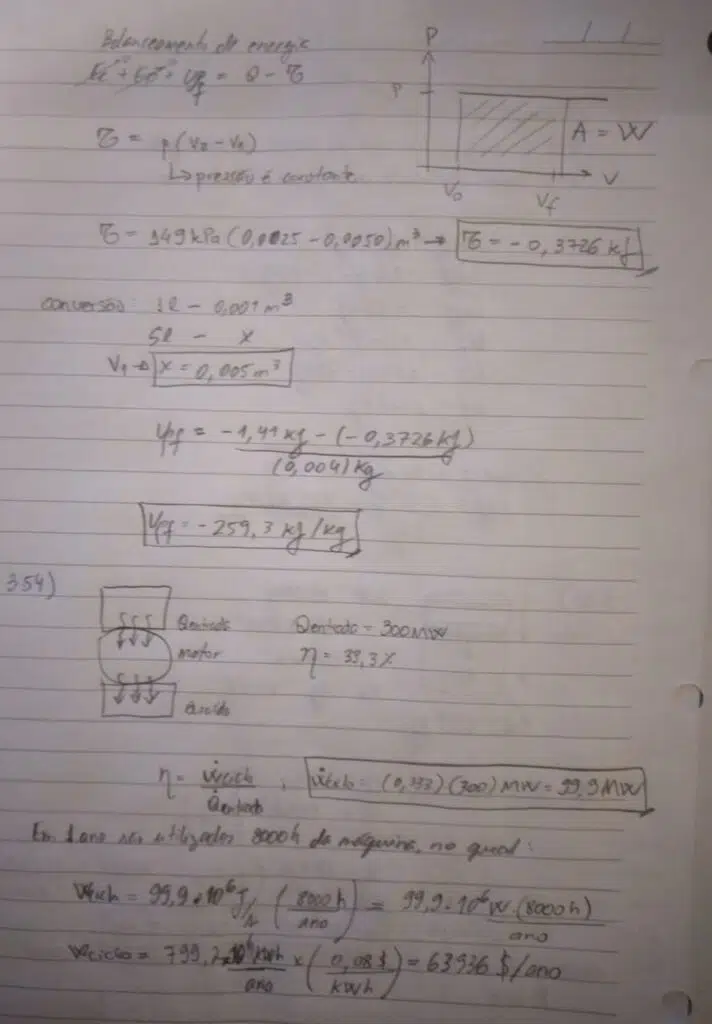 Balanceamento de energia
P
Ec⁰ + Ep⁰ + Uf = Q - τ
P
τ = p(V2 - V1)
A = W
↳ pressão é constante
V0 Vf V
τ = 149 kPa (0,0025 - 0,0050) m³ → τ = -0,3726 kJ
conversão: 1l - 0,001 m³
5l - x
V1 → x = 0,005 m³
= -1,41 kJ - (-0,3726 kJ)
(0,004) kg
= -259,3 kJ/kg
354)
Qentrada Qentrada = 300 MW
motor η = 33,3%
Qsaida
η = Ẇciclo / Q̇entrada , Ẇciclo = (0,333)(300) MW = 99,9 MW
Em 1 ano são utilizados 8000h da máquina, no qual:
Wciclo = 99,9·10⁶ J/s (8000h / ano) = 99,9·10⁶ W·(8000h) / ano
Wciclo = 799,2×10⁶ kWh / ano × (0,08 $ / kWh) = 63936 $/ano